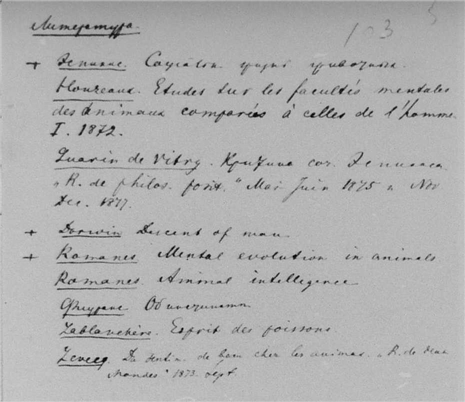 Литература.
103
+ Эспинас. Социальн. жизнь животных.
Houzeaux. Etudes sur les facultés mentales
des animaux comparées à celles de l'homme
I. 1872.
Guarin de Vitry. Критика соч. Эспинаса
"R. de philos. posit." Mai Juin 1875 и Nov
Dec. 1877.
+ Darwin Descent of man
+ Romanes. Mental evolution in animals
Romanes Animal intelligence
Об инстинкте
Lablanchère. Esprit des poissons
de chez les animaux. "R. de deux
Mondes" 1873. sept